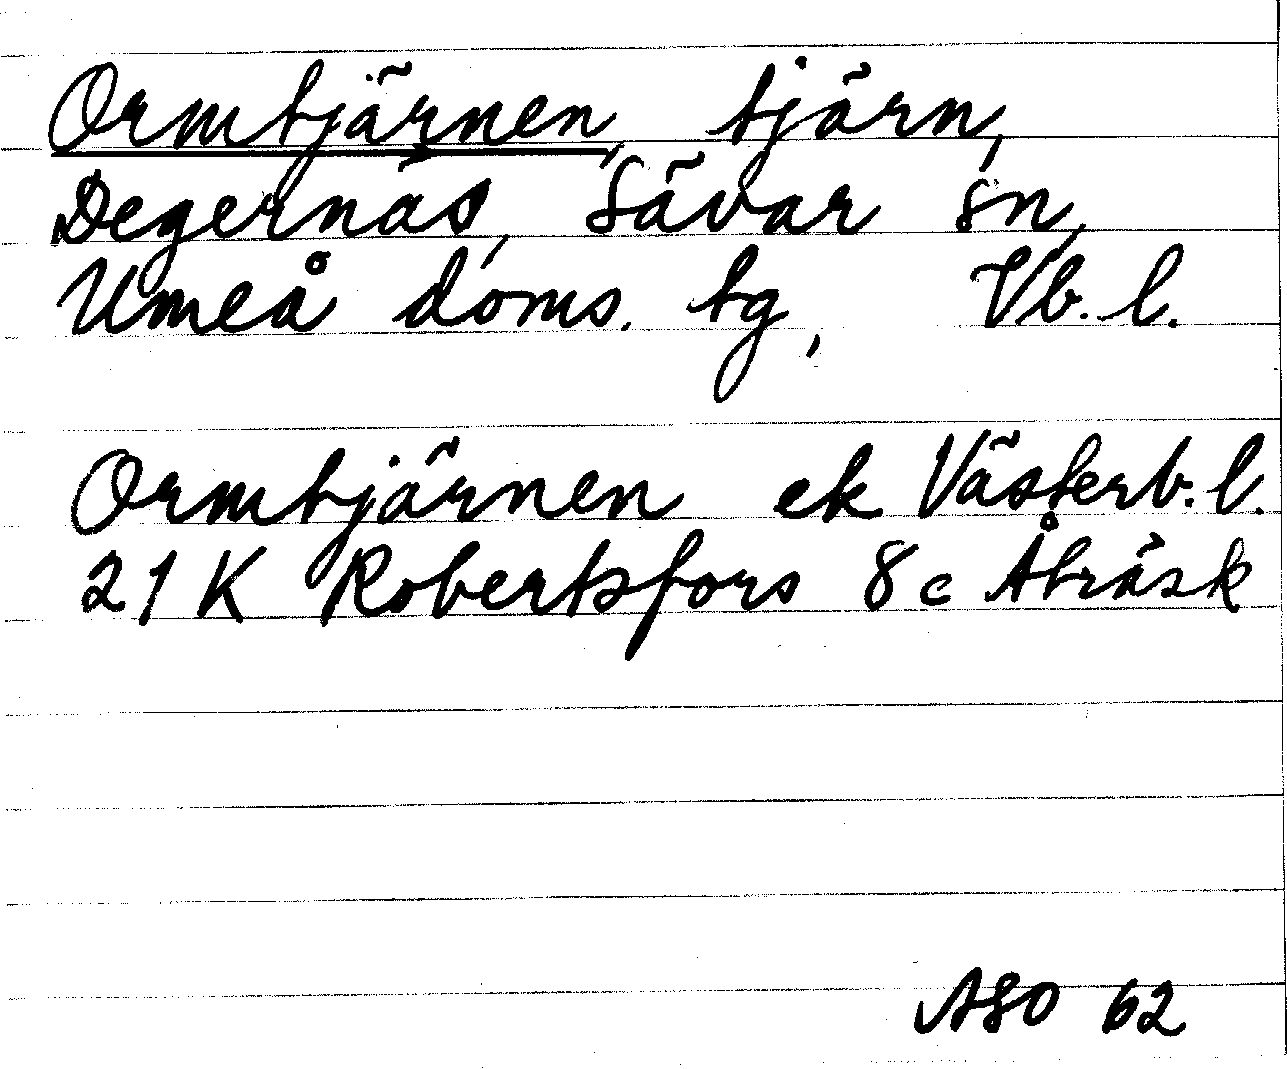 Ormtjärnen, tjärn,
Degernäs, Sävar sn,
Umeå doms. tg, Vb. l.
Ormtjärnen ek Västerb. l.
21 K Robertsfors 8 c Åträsk
ASO 62